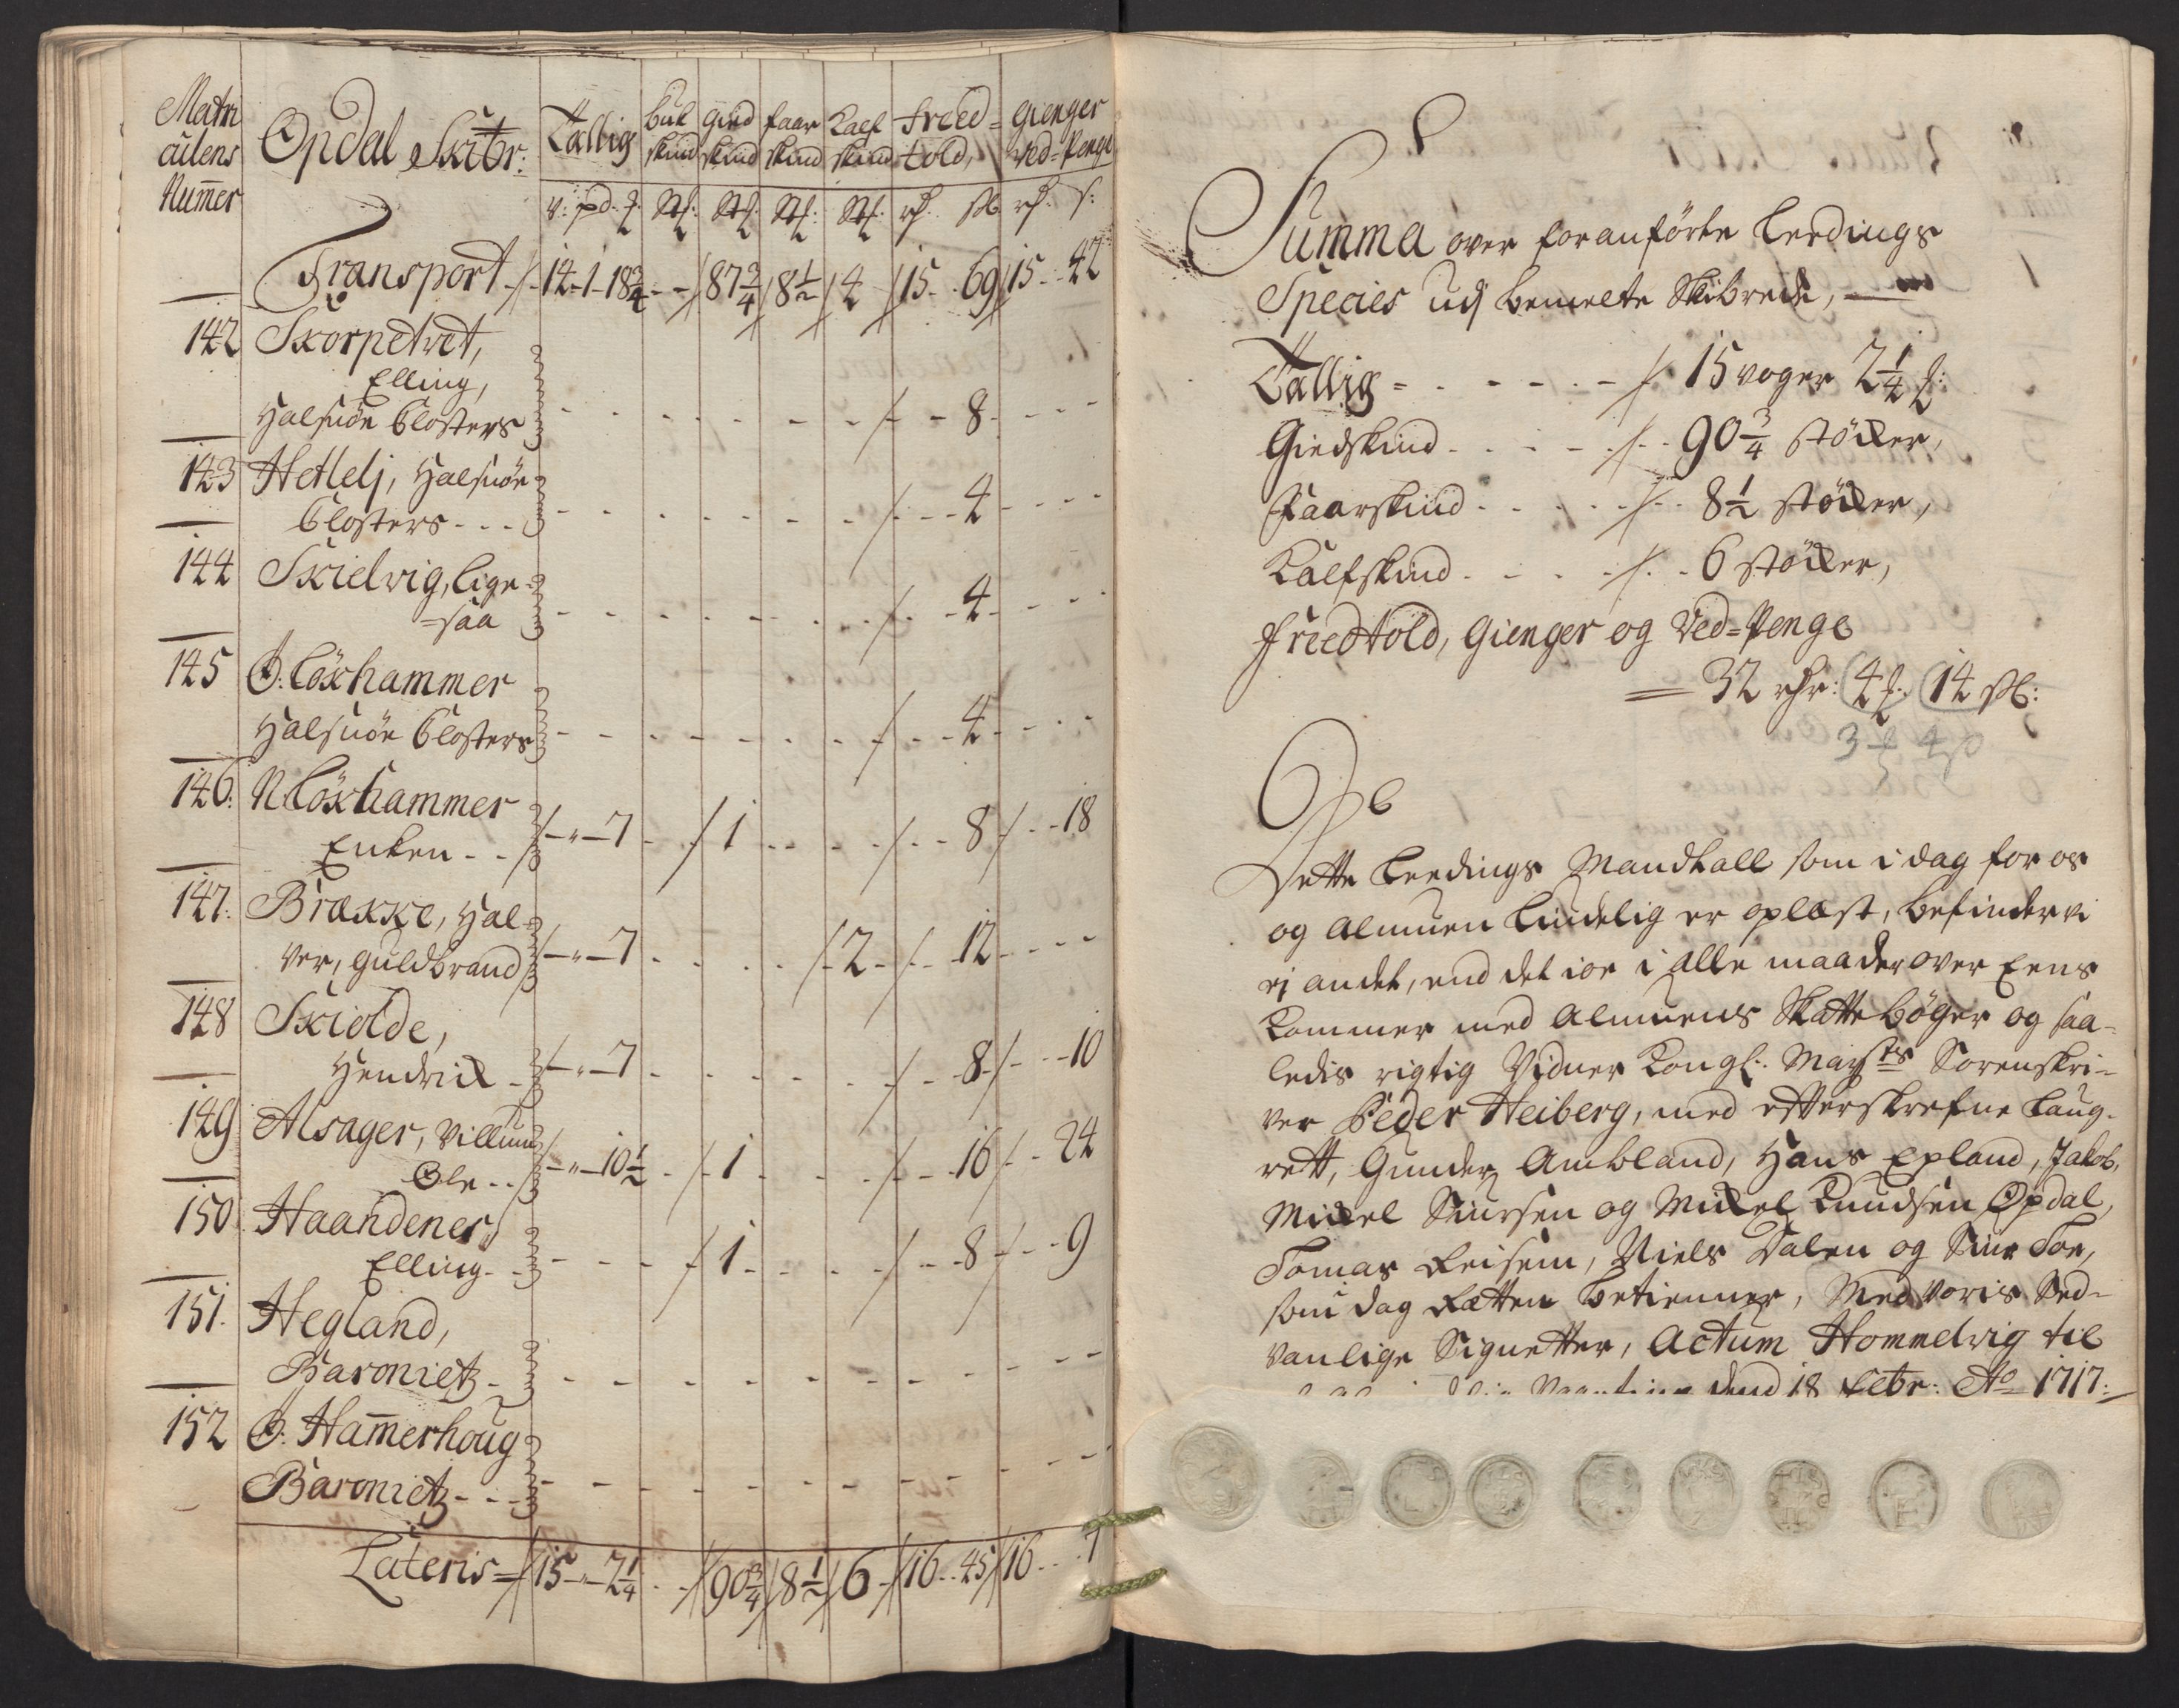 Matri
culens
Num̅er
Opdal Skibr:
Tallig
Buk
skind
Gied
skind
faar
skind
Kalf
skind
Freed=
told,
Gienger
Ved=Penge
Transport 14-1-18¾ - - 87¾ 8½ 4 15 - 69 15 - 42
142 Skorpetvet,
Elling,
Halsnöe Closters - - - 8 - - -
143 Hetlelj, Halsnöe
Closters - - - 4 - - -
144 Skielvig, lige-
=saa - - - 4 - - -
145 Ö: Löxhammer
Halsnöe Closters - - - 4 - - -
146: N Löxhammer
Enken - - 7 - 1 - - 8 - 18
147: Brekke, Hal-
ver, Guldbrand - 7 - - 2 - 12 - - -
148 Skiolde,
Hendrik - 7 - - - 8 - 10
149 Alsager, Villum
Ole - - 10½ - 1 - - 16 - 24
150 Haandenes
Elling - - - 1 - - 8 - 9
151. Hegland,
Baroniet - - -
152 Ö. Ham̅erhoug
Baroniet - - -
Lateris = 15 - 2¼ - - 90¾ 8½ 6 16 - 45 16 - 7
Summa over foranförte Leedings
Species udj bemelte Skibrede,
Tallig - - - - 15 voger 2¼
Giedskind - - - - 90¾ stöcker,
Faarskind - - - - 8½ stöcker,
Kalfskind - - - - 6 stöcker,
Freedtold, Gienger og Ved=Penge
= 32 rdr: 4 14 sk:
3 4
Dette Leedings Mandtall som i dag for os
og Almuen Lydelig er oplæst, befinder vi
ej andet, end det ioe i alle maader over Eens
Kommer med Almuens Skatte bøger og saa-
ledis rigtig Vidner Kongl: Maysts Sorenskri-
ver Peder Heiberg, med efterskrefne Laug-
rett, Gunder Ambland, Hans Epland, Jakob,
Mickel Siursen og Mickel Knudsen Opdal,
Tomas Reisem, Niels Dalen og Siur Toe,
som i dag Retten betienner, Med Voris Sed-
vanlige Signetter, Actum Hommelvig til
dend 18 Febr: Ao 1717: